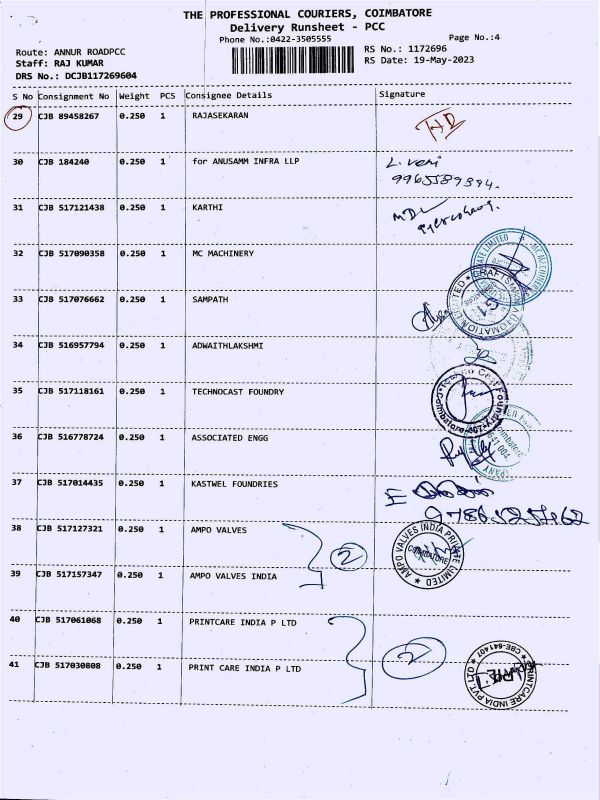 THE PROFESSIONAL COURIERS, COIMBATORE
Delivery Runsheet - PCC
Phone No.:0422-3505555
Page No.:4
Route: ANNUR ROADPCC
RS No.: 1172696
Staff: RAJ KUMAR
RS Date: 19-May-2023
DRS No.: DCJB117269604
S No Consignment No Weight PCS Consignee Details Signature
29 CJB 89458267 0.250 1 RAJASEKARAN
30 CJB 184240 0.250 1 for ANUSAMM INFRA LLP L. Veni
9965589394.
31 CJB 517121438 0.250 1 KARTHI
32 CJB 517090358 0.250 1 MC MACHINERY
33 CJB 517076662 0.250 1 SAMPATH
34 CJB 516957794 0.250 1 ADWAITHLAKSHMI
35 CJB 517118161 0.250 1 TECHNOCAST FOUNDRY
36 CJB 516778724 0.250 1 ASSOCIATED ENGG
37 CJB 517014435 0.250 1 KASTWEL FOUNDRIES
38 CJB 517127321 0.250 1 AMPO VALVES
2
AMPO VALVES INDIA PRIVATE LIMITED
COIMBATORE
39 CJB 517157347 0.250 1 AMPO VALVES INDIA
40 CJB 517061068 0.250 1 PRINTCARE INDIA P LTD
2
PRINTCARE INDIA PVT. LTD
CBE-641407
41 CJB 517030808 0.250 1 PRINT CARE INDIA P LTD